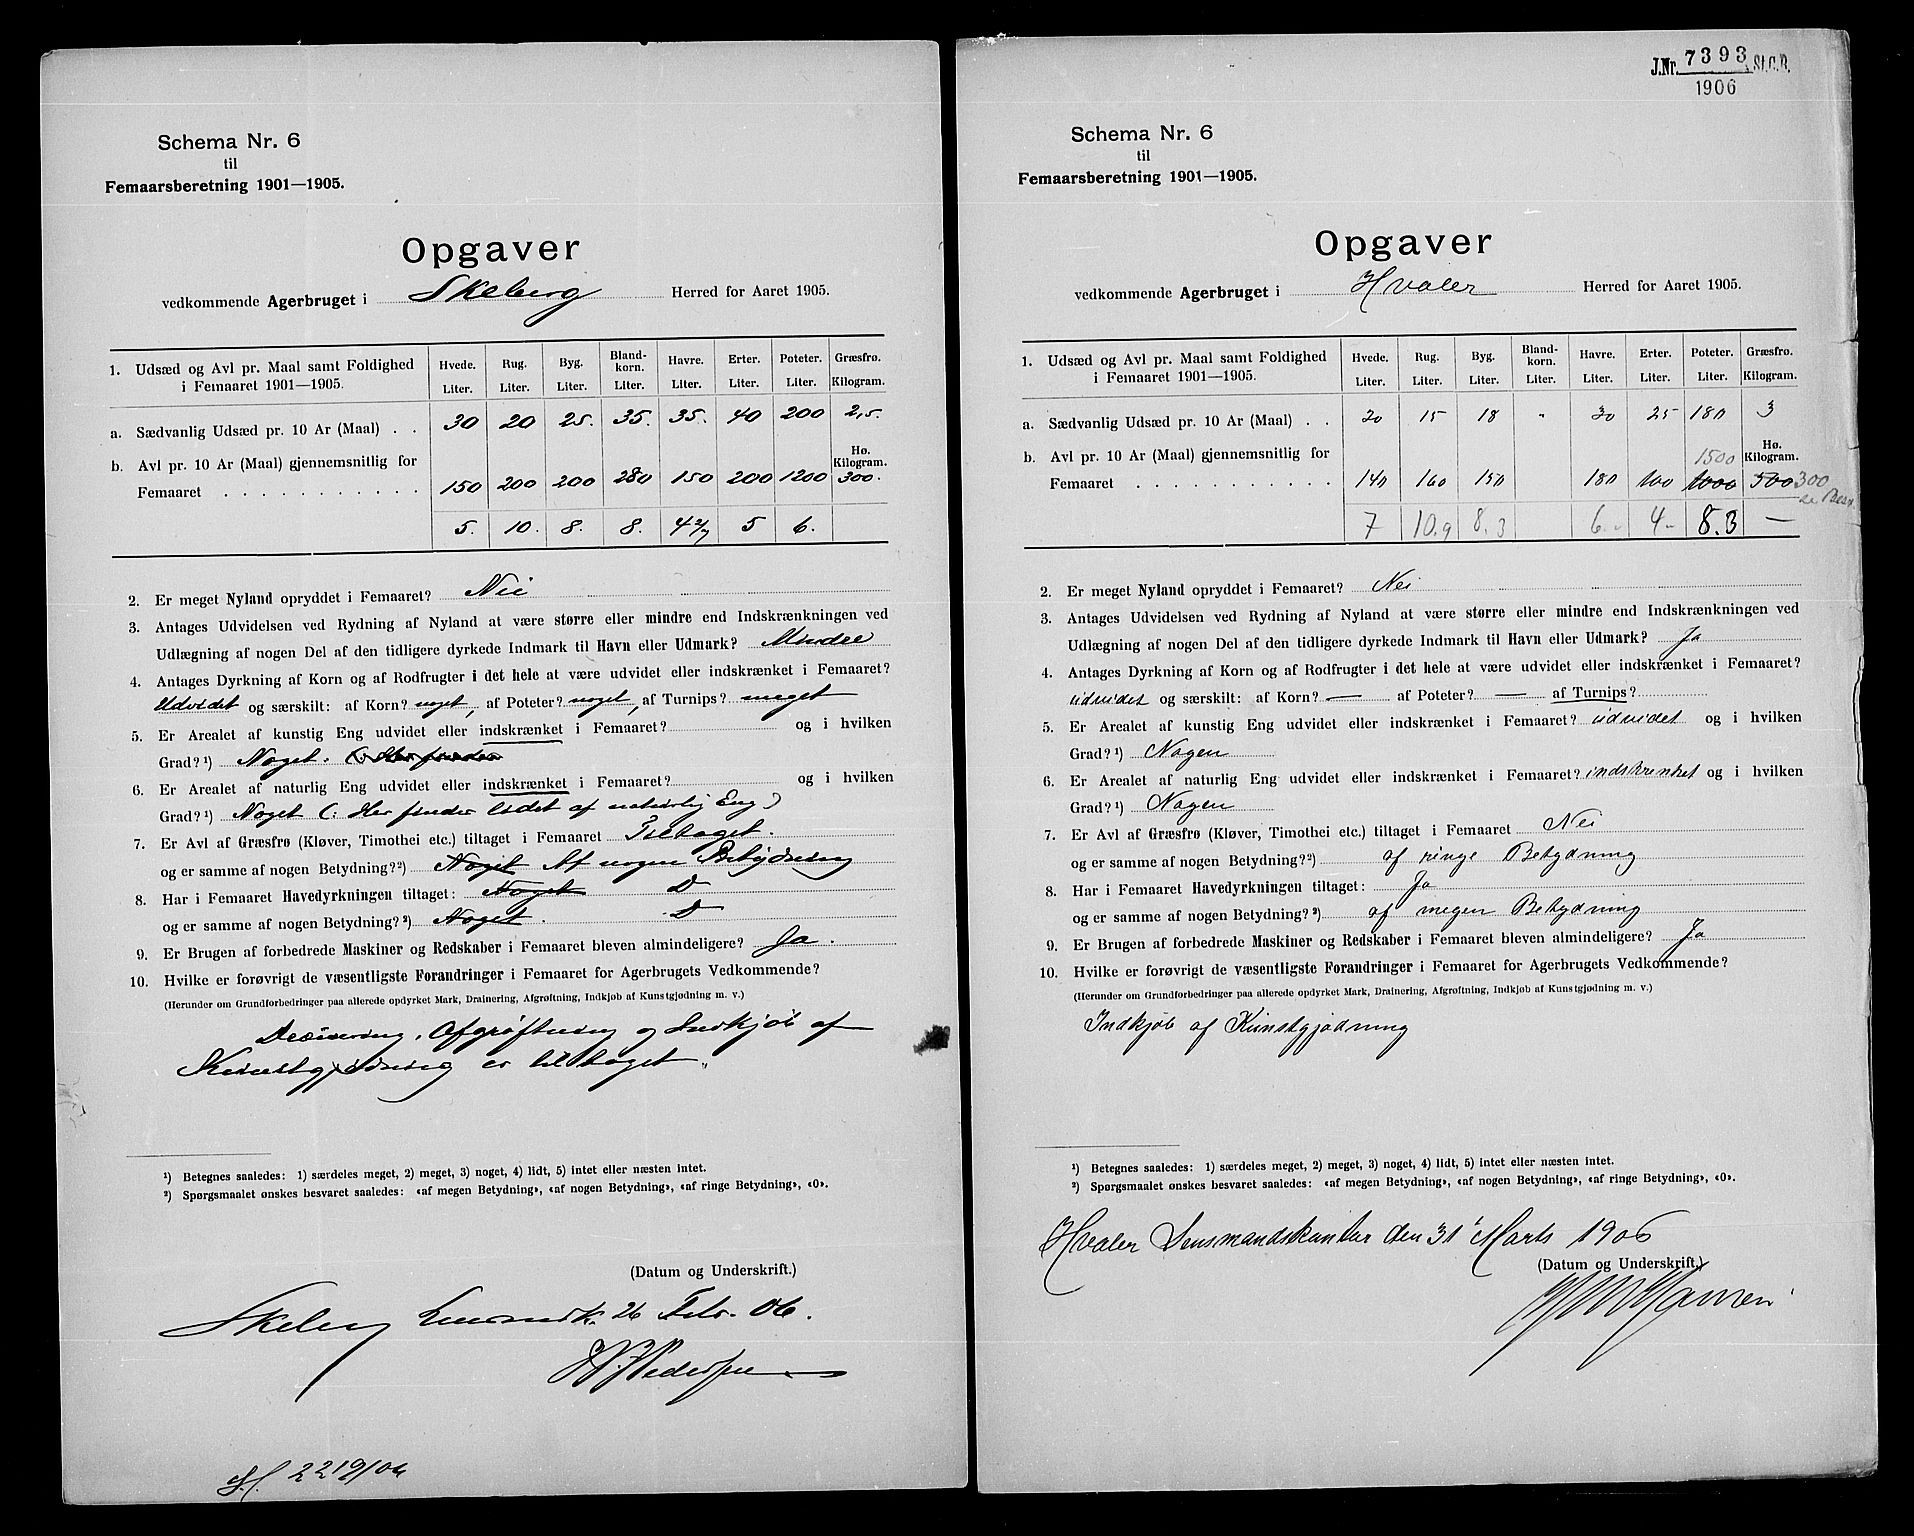 Schema Nr. 6
til
Femaarsberetning 1901—1905.
Opgaver
vedkommende Agerbruget i Skeberg Herred for Aaret 1905.
1. Udsæd og Avl pr. Maal samt Foldighed i Femaaret 1901—1905. Hvede. Liter. Rug. Liter. Byg. Liter. Bland-korn. Liter. Havre. Liter. Erter. Liter. Poteter. Liter. Græsfrø. Kilogram.
a. Sædvanlig Udsæd pr. 10 Ar (Maal) . . 30 20 25. 35. 35. 40 200 2,5.
b. Avl pr. 10 Ar (Maal) gjennemsnitlig for Hø. Kilogram.
Femaaret . . . . . . . . . . . . 150 200 200 280 150 200 1200 300.
5. 10. 8. 8. 4 2/7 5 6.
2. Er meget Nyland opryddet i Femaaret? Nei
3. Antages Udvidelsen ved Rydning af Nyland at være større eller mindre end Indskrænkningen ved
Udlægning af nogen Del af den tidligere dyrkede Indmark til Havn eller Udmark? Mindre
4. Antages Dyrkning af Korn og af Rodfrugter i det hele at være udvidet eller indskrænket i Femaaret?
Udvidet og særskilt: af Korn? noget, af Poteter? noget, af Turnips? meget
5. Er Arealet af kunstig Eng udvidet eller indskrænket i Femaaret? og i hvilken
Grad?¹) Noget. (: Her finder
6. Er Arealet af naturlig Eng udvidet eller indskrænket i Femaaret? og i hvilken
Grad?¹) Noget (: Her finder lidet af naturlig Eng)
7. Er Avl af Græsfrø (Kløver, Timothei etc.) tiltaget i Femaaret Tiltaget.
og er samme af nogen Betydning?²) Noget Af nogen Betydning
8. Har i Femaaret Havedyrkningen tiltaget: Noget D
og er samme af nogen Betydning?²) Noget. D
9. Er Brugen af forbedrede Maskiner og Redskaber i Femaaret bleven almindeligere? Ja.
10. Hvilke er forøvrigt de væsentligste Forandringer i Femaaret for Agerbrugets Vedkommende?
(Herunder om Grundforbedringer paa allerede opdyrket Mark, Drainering, Afgrøftning, Indkjøb af Kunstgjødning m. v.)
Dræinering, Afgrøftning og Indkjøb af
Kunstgjødning er tiltaget.
¹) Betegnes saaledes: 1) særdeles meget, 2) meget, 3) noget, 4) lidt, 5) intet eller næsten intet.
²) Spørgsmaalet ønskes besvaret saaledes: «af megen Betydning», «af nogen Betydning», «af ringe Betydning», «0».
(Datum og Underskrift.)
Skeberg Lensmandsk. 26 Febr. 06.
Pedersen
2219/06
J.Nr. 7393 St.C.B.
1906
Schema Nr. 6
til
Femaarsberetning 1901—1905.
Opgaver
vedkommende Agerbruget i Hvaler Herred for Aaret 1905.
1. Udsæd og Avl pr. Maal samt Foldighed i Femaaret 1901—1905. Hvede. Liter. Rug. Liter. Byg. Liter. Bland-korn. Liter. Havre. Liter. Erter. Liter. Poteter. Liter. Græsfrø. Kilogram.
a. Sædvanlig Udsæd pr. 10 Ar (Maal) . . 20 15 18 " 30 25 180 3
b. Avl pr. 10 Ar (Maal) gjennemsnitlig for 1500 Hø. Kilogram.
Femaaret . . . . . . . . . . . . 140 160 150 180 100 1000 500 300
7 10.9 8.3 6.- 4- 8.3 —
2. Er meget Nyland opryddet i Femaaret? Nei
3. Antages Udvidelsen ved Rydning af Nyland at være større eller mindre end Indskrænkningen ved
Udlægning af nogen Del af den tidligere dyrkede Indmark til Havn eller Udmark? Ja
4. Antages Dyrkning af Korn og af Rodfrugter i det hele at være udvidet eller indskrænket i Femaaret?
udvidet og særskilt: af Korn? — af Poteter? — af Turnips?
5. Er Arealet af kunstig Eng udvidet eller indskrænket i Femaaret? udvidet og i hvilken
Grad?¹) Nogen
6. Er Arealet af naturlig Eng udvidet eller indskrænket i Femaaret? indskrenket og i hvilken
Grad?¹) Nogen
7. Er Avl af Græsfrø (Kløver, Timothei etc.) tiltaget i Femaaret Nei
og er samme af nogen Betydning?²) af ringe Betydning
8. Har i Femaaret Havedyrkningen tiltaget: Ja
og er samme af nogen Betydning?²) af megen Betydning
9. Er Brugen af forbedrede Maskiner og Redskaber i Femaaret bleven almindeligere? Ja
10. Hvilke er forøvrigt de væsentligste Forandringer i Femaaret for Agerbrugets Vedkommende?
(Herunder om Grundforbedringer paa allerede opdyrket Mark, Drainering, Afgrøftning, Indkjøb af Kunstgjødning m. v.)
Indkjøb af Kunstgjødning
¹) Betegnes saaledes: 1) særdeles meget, 2) meget, 3) noget, 4) lidt, 5) intet eller næsten intet.
²) Spørgsmaalet ønskes besvaret saaledes: «af megen Betydning», «af nogen Betydning», «af ringe Betydning», «0».
Hvaler Lensmandskontor den 31 Marts 1906
(Datum og Underskrift.)
Hansen